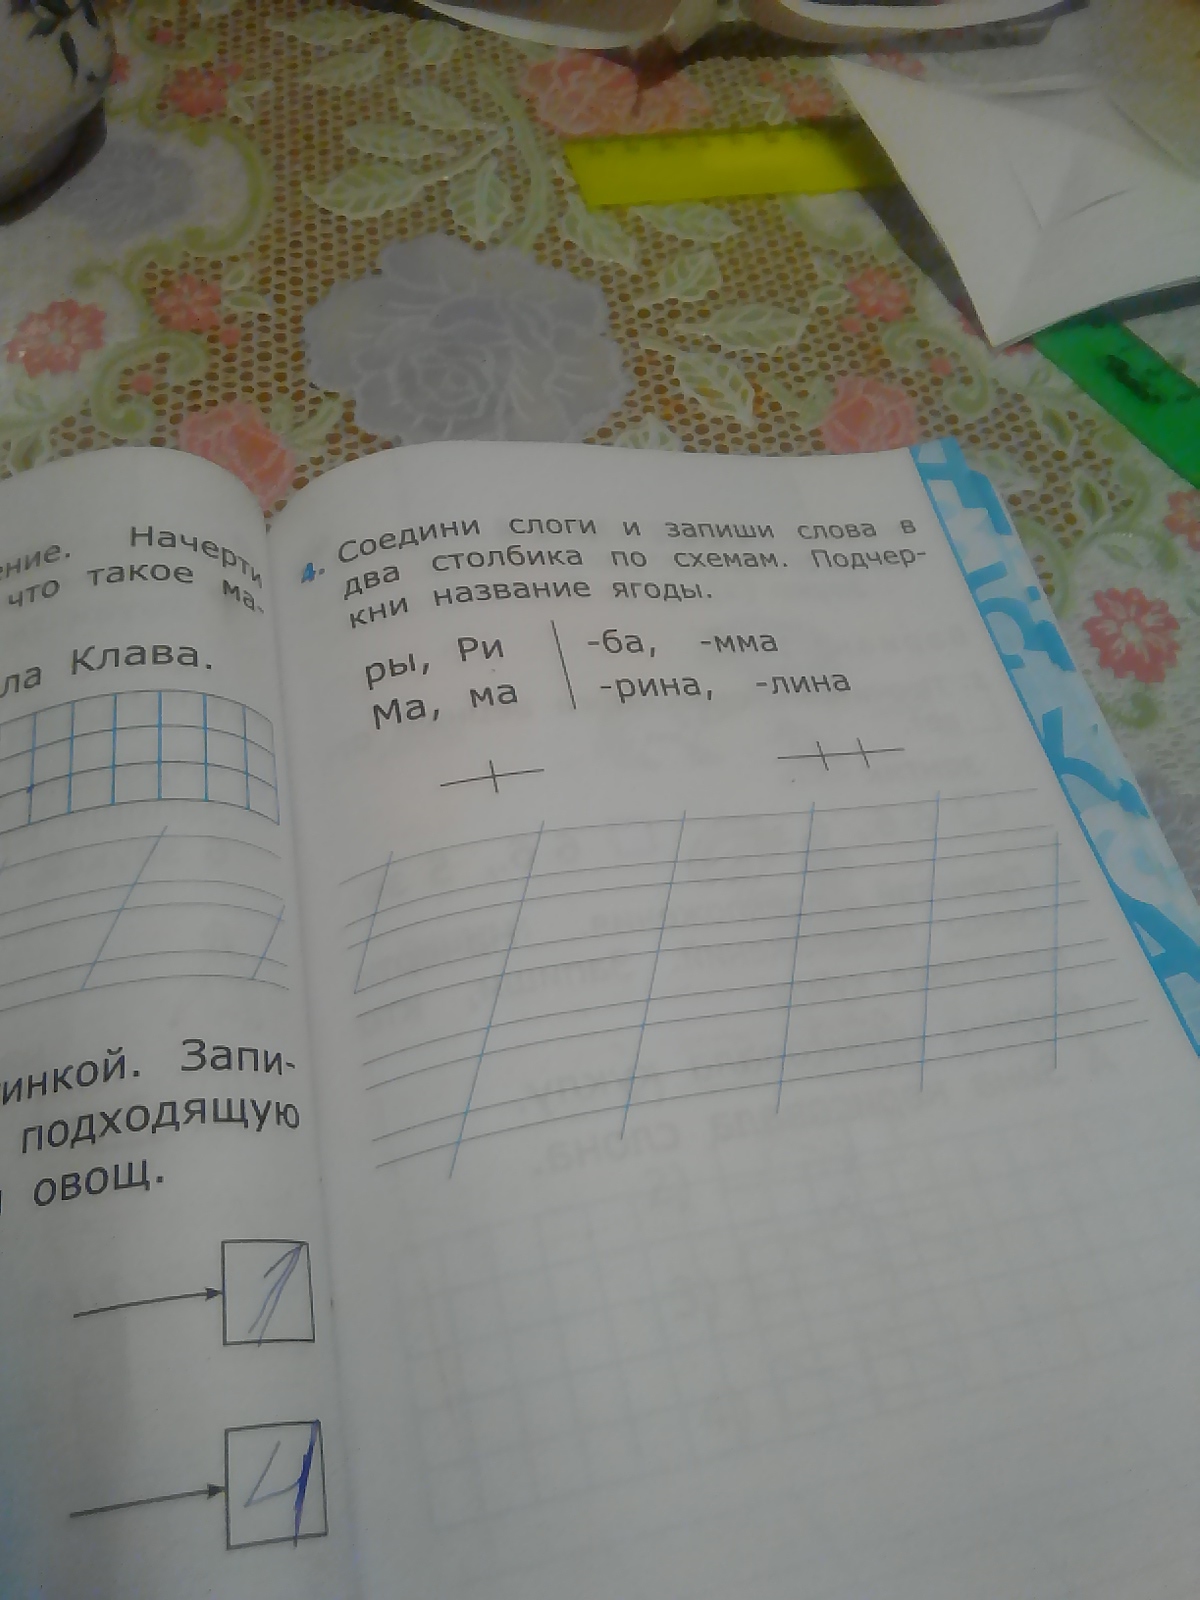 ение. Начерти
что такое ма-
ла Клава.
инкой. Запи-
подходящую
овощ.
1
4
4. Соедини слоги и запиши слова в
два столбика по схемам. Подчер-
кни название ягоды.
ры, Ри | -ба, -мма
Ма, ма | -рина, -лина